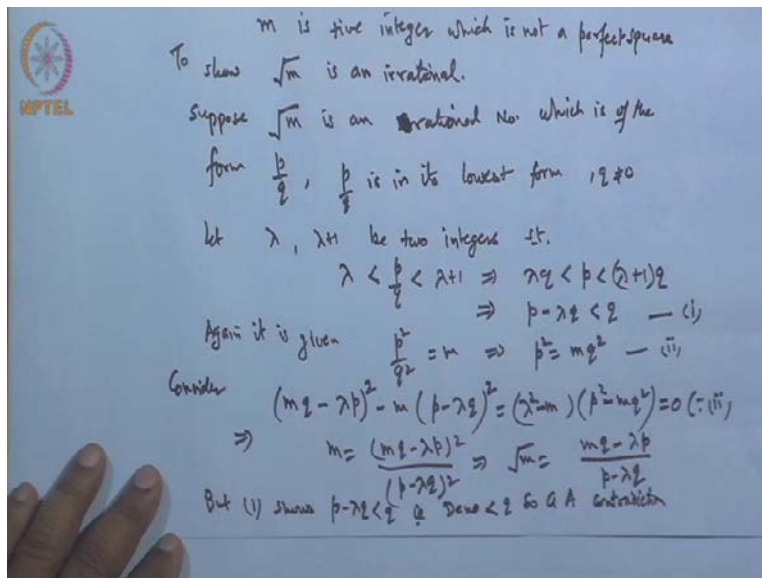 m is +ive integer which is not a perfect square
To show √m is an irrational.
NPTEL
Suppose √m is an rational No. which is of the
form p/q, p/q is in its lowest form, q≠0
let λ, λ+1 be two integers st.
λ < p/q < λ+1 ⇒ λq < p < (λ+1)q
⇒ p-λq < q — (i)
Again it is given p²/q² = m ⇒ p² = mq² — (ii)
Consider
(mq - λp)² - m(p-λq)² = (λ²-m)(p²-mq²) = 0 (∵ (ii)
⇒ m = (mq-λp)²/(p-λq)² ⇒ √m = (mq-λp)/(p-λq)
But (1) shows p-λq < q Deno < q so A contradiction